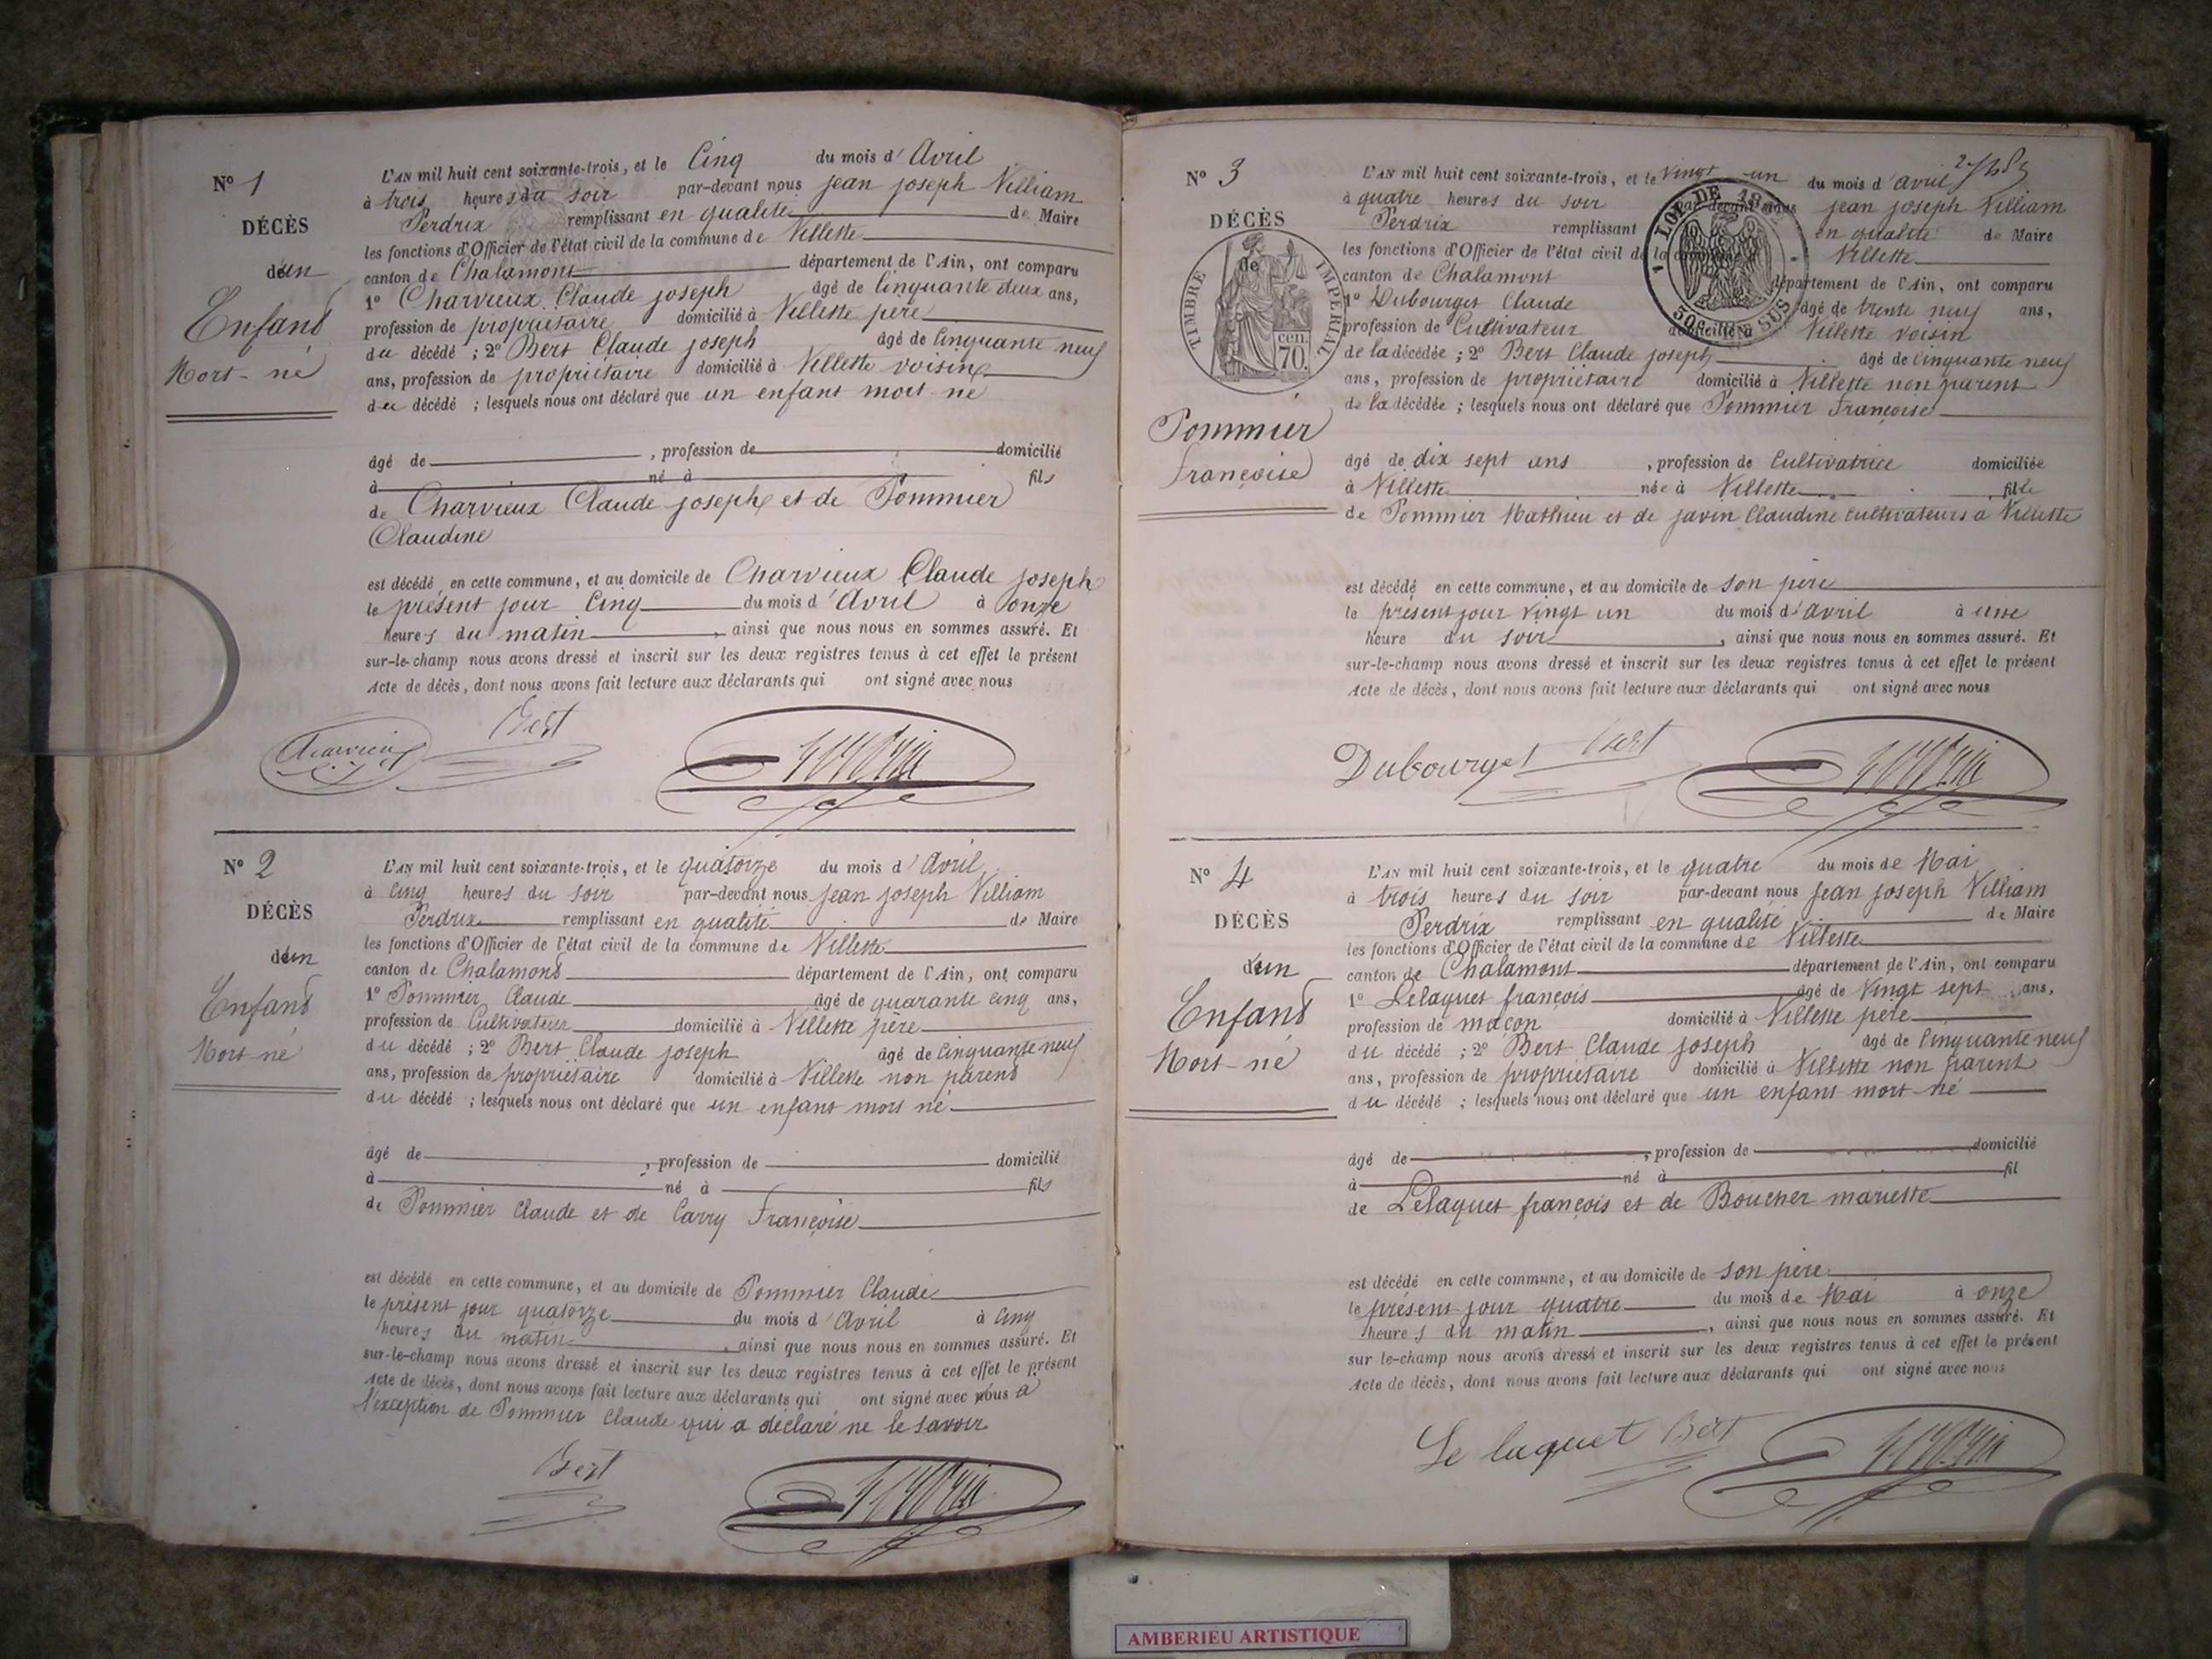 N° 1
DÉCÈS
d'un
Enfant
Mort-né
L'AN mil huit cent soixante-trois, et le Cinq du mois d'Avril
à trois heures du soir par-devant nous jean joseph Villiam
Perdrix remplissant en qualité de Maire
les fonctions d'Officier de l'état civil de la commune de Villette
canton de Chalamont département de l'Ain, ont comparu
1° Charvieux Claude joseph âgé de Cinquante deux ans,
profession de propriétaire domicilié à Villette père
du décédé ; 2° Bert Claude joseph âgé de Cinquante neuf
ans, profession de propriétaire domicilié à Villette voisin
du décédé ; lesquels nous ont déclaré que un enfant mort né
âgé de , profession de domicilié
à né à fils
de Charvieux Claude joseph et de Pommier
Claudine
est décédé en cette commune, et au domicile de Charvieux Claude joseph
le présent jour Cinq du mois d'Avril à onze
heures du matin , ainsi que nous nous en sommes assuré. Et
sur-le-champ nous avons dressé et inscrit sur les deux registres tenus à cet effet le présent
Acte de décès, dont nous avons fait lecture aux déclarants qui ont signé avec nous
Charvieux Bert
N° 2
DÉCÈS
d'un
Enfant
Mort-né
L'AN mil huit cent soixante-trois, et le quatorze du mois d'Avril
à Cinq heures du soir par-devant nous jean joseph Villiam
Perdrix remplissant en qualité de Maire
les fonctions d'Officier de l'état civil de la commune de Villette
canton de Chalamont département de l'Ain, ont comparu
1° Pommier Claude âgé de quarante cinq ans,
profession de Cultivateur domicilié à Villette père
du décédé ; 2° Bert Claude joseph âgé de Cinquante neuf
ans, profession de propriétaire domicilié à Villette non parent
du décédé ; lesquels nous ont déclaré que un enfant mort né
âgé de , profession de domicilié
à né à fils
de Pommier Claude et de Carry Françoise
est décédé en cette commune, et au domicile de Pommier Claude
le présent jour quatorze du mois d'Avril à Cinq
heures du matin , ainsi que nous nous en sommes assuré. Et
sur-le-champ nous avons dressé et inscrit sur les deux registres tenus à cet effet le présent
Acte de décès, dont nous avons fait lecture aux déclarants qui ont signé avec nous a
l'exception de Pommier Claude qui a déclaré ne le savoir
Bert
N° 3
DÉCÈS
de
TIMBRE IMPÉRIAL
cen.
70.
Pommier
françoise
L'AN mil huit cent soixante-trois, et le Vingt un du mois d'avril
à quatre heures du soir par-devant nous jean joseph Villiam
Perdrix remplissant en qualité de Maire
les fonctions d'Officier de l'état civil de la commune de Villette
canton de Chalamont département de l'Ain, ont comparu
1° Dubourget Claude âgé de trente neuf ans,
profession de Cultivateur domicilié à Villette voisin
de la décédée ; 2° Bert Claude joseph âgé de Cinquante neuf
ans, profession de propriétaire domicilié à Villette non parent
de la décédée ; lesquels nous ont déclaré que Pommier Françoise
âgé de dix sept ans , profession de Cultivatrice domiciliée
à Villette née à Villette fille
de Pommier Mathieu et de javin Claudine Cultivateurs a Villette
est décédé en cette commune, et au domicile de son père
le présent jour Vingt un du mois d'avril à une
heure du soir , ainsi que nous nous en sommes assuré. Et
sur-le-champ nous avons dressé et inscrit sur les deux registres tenus à cet effet le présent
Acte de décès, dont nous avons fait lecture aux déclarants qui ont signé avec nous
Dubourget Bert
N° 4
DÉCÈS
d'un
Enfant
Mort-né
L'AN mil huit cent soixante-trois, et le quatre du mois de Mai
à trois heures du soir par-devant nous jean joseph Villiam
Perdrix remplissant en qualité de Maire
les fonctions d'Officier de l'état civil de la commune de Villette
canton de Chalamont département de l'Ain, ont comparu
1° Lelaquet françois âgé de Vingt sept ans,
profession de maçon domicilié à Villette père
du décédé ; 2° Bert Claude joseph âgé de Cinquante neuf
ans, profession de propriétaire domicilié à Villette non parent
du décédé ; lesquels nous ont déclaré que un enfant mort né
âgé de , profession de domicilié
à né à fil
de Lelaquet françois et de Boucher mariette
est décédé en cette commune, et au domicile de son père
le présent jour quatre du mois de Mai à onze
heures du matin , ainsi que nous nous en sommes assuré. Et
sur-le-champ nous avons dressé et inscrit sur les deux registres tenus à cet effet le présent
Acte de décès, dont nous avons fait lecture aux déclarants qui ont signé avec nous
Le laquet Bert
AMBERIEU ARTISTIQUE